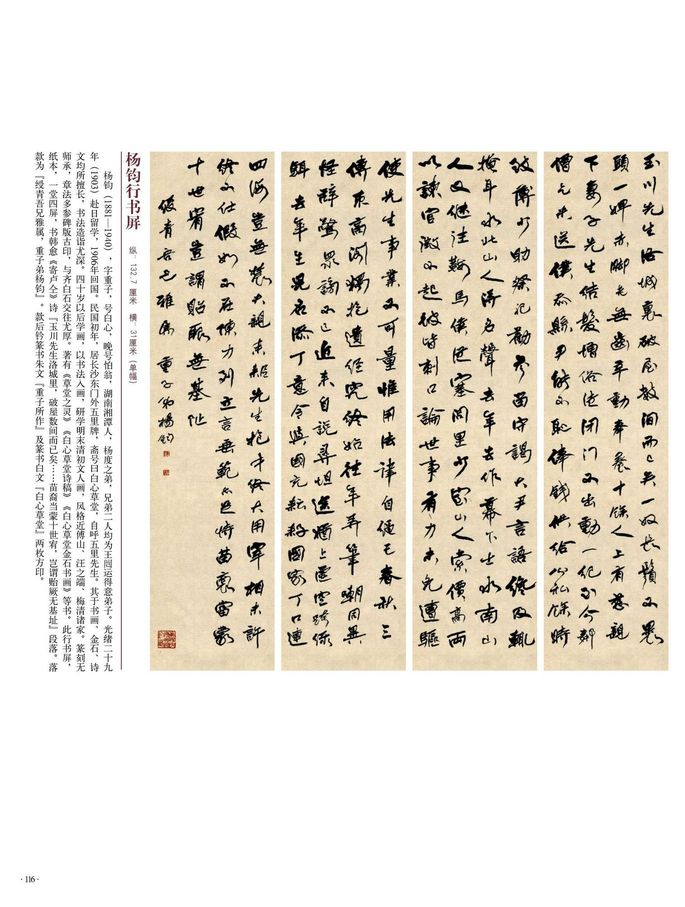 玉川先生洛城裏破屋數間而已矣一奴長鬚不裹
頭一婢赤脚老無齒辛勤奉養十餘人上有慈親
下妻子先生結髮憎俗徒閉門不出動一紀至今鄰
僧乞米送僕忝縣尹能不恥俸錢供給公私餘時
致薄少助祭祀勸參留守謁大尹言語纔及輒
掩耳水北山人得名聲去年去作幕下士水南山
人又繼往鞍馬僕從塞閭里少室山人索價高兩
以諫官徵不起彼皆刺口論世事有力未免遭驅
使先生事業不可量惟用法律自繩己春秋三
傳束高閣獨抱遺經究終始往年弄筆嘲同異
怪辭驚衆謗不已近來自說尋坦途猶上虛空跨綠
駬去年生兒名添丁意令與國充耘耔國家丁口連
四海豈無農夫親耒耜先生抱才終大用宰相未許
終不仕假如不在陳力列立言垂範亦足恃苗裔當蒙
十世宥豈謂貽厥無基阯
綬青吾兄雅屬 重子弟楊鈞
杨钧行书屏 纵：132.7厘米 横：31厘米（单幅）
杨钧（1881—1940），字重子，号白心，晚号怕翁，湖南湘潭人，杨度之弟，兄弟二人均为王闿运得意弟子。光绪二十九
年（1903）赴日留学，1906年回国。民国初年，居长沙东门外五里牌，斋号曰白心草堂，自呼五里先生。其于书画、金石、诗
文均所擅长，书法造诣尤深。四十岁以后学画，以书法入画，研学明末清初文人画，风格近傅山、汪之端、梅清诸家。篆刻无
师承，章法多参碑版古印，与齐白石交往尤厚。著有《草堂之灵》《白心草堂诗稿》《白心草堂金石书画》等书。此行书屏，
纸本，一堂四屏，书韩愈《寄卢仝》诗『玉川先生洛城里，破屋数间而已矣……苗裔当蒙十世宥，岂谓贻厥无基址』段落。落
款为『绶青吾兄雅属，重子弟杨钧』。款后钤篆书朱文『重子所作』及篆书白文『白心草堂』两枚方印。
·116·